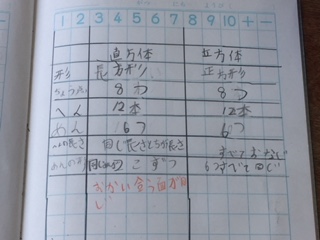 1 2 3 4 5 6 7 8 9 10 + −
直方体 立方体
形 長方形 正方形
ちょう点 8つ 8つ
へん 12本 12本
めん 6つ 6つ
へんの長さ 同じ長さ すべておなじ
めんの形 こずつ 6つすべて同じ
むかい合う面が同
じ